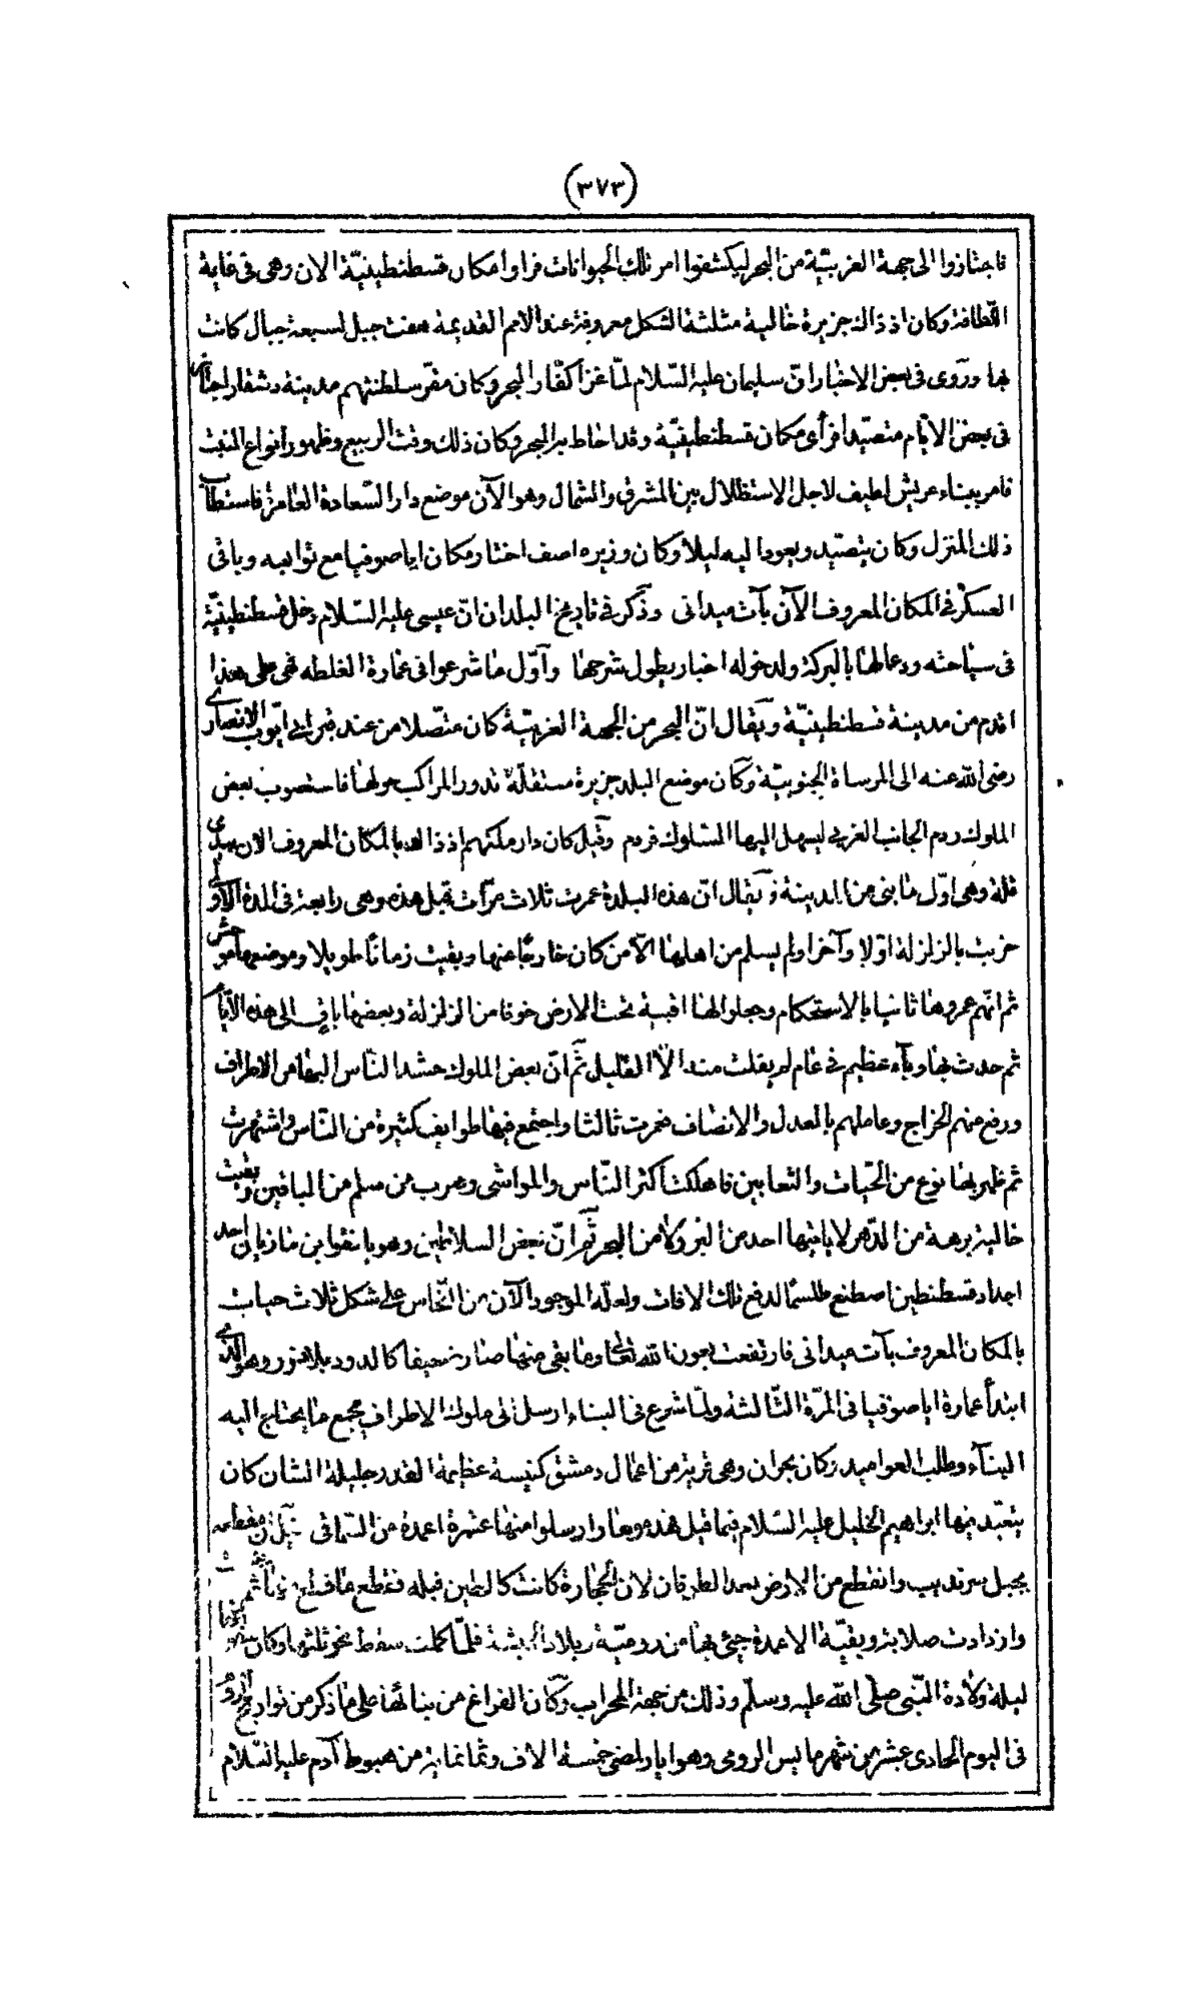 (٣٧٣)
فاجتازوا الى جهة الغربيّة من البحر ليكشفوا امر تلك الحيوانات فراوا مكان قسطنطينيّة الان وهى فى غاية
اللطافة وكان اذ ذاك جزيرة خالية مثلثة الشكل معروفة عند الامم القديمة بهفت جبل لسبعة جبال كانت
بها وروى فى بعض الاخبار انّ سليمان عليه السّلام لمّا غزا كفّار البحر وكان مقرّ سلطنتهم مدينة دشقار اجتاز
فى بعض الايّام متصيّدا فرأى مكان قسطنطينيّة وقد احاط به البحر وكان ذلك وقت الربيع وظهور انواع النبت
فامر ببناء عريش لطيف لاجل الاستظلال بين المشرق والشمال وهو الآن موضع دار السّعادة العامرة فاستطاب
ذلك المنزل وكان يتصيّد ويعود اليه ليلا وكان وزيره اصف اختار مكان اياصوفيا مع توابعه وباقى
العسكر فى المكان المعروف الآن بآت ميدانى وذكر فى تاريخ البلدان انّ عيسى عليه السّلام دخل قسطنطينيّة
فى سياحته ودعا لها بالبركة ولدخوله اخبار يطول شرحها وآوّل ما شرعوا فى عمارة الغلطه فهى على هذا
اقدم من مدينة قسطنطينيّة ويقال انّ البحر من الجهة الغربيّة كان متّصلا من عند قبر ابى ايّوب الانصارى
رضى الله عنه الى المرساة الجنوبيّة وكان موضع البلد جزيرة مستقلّة تدور المراكب حولها فاستصوب بعض
الملوك ردم الجانب الغربى ليسهل اليها السّلوك فردم وقيل كان دار ملكهم اذ ذاك بالمكان المعروف الان بيدى
قلة وهى اوّل ما بنى من المدينة ويقال انّ هذه البلدة عمرت ثلاث مرّات قبل هذه وهى رابعة فى المدة الاولى
خربت بالزلزلة اوّلا وآخرا ولم يسلم من اهلها الّا من كان خارجًا عنها وبقيت زمانًا طويلا وموضعها موحش
ثم انّهم عمروها ثانيا بالاستحكام وجعلوا لها اقبية تحت الارض خوفا من الزلزلة وبعضها باق الى هذه الايّام
ثم حدث بها وبآء عظيم فى عام لم يفلت منه الّا القليل ثم انّ بعض الملوك حشد النّاس اليها من الاطراف
ورفع عنهم الخراج وعاملهم بالعدل والانصاف فعمرت ثالثا واجتمع فيها طوايف كثيرة من النّاس واشتهرت
ثم ظهر بها نوع من الحيّات والثعابين فاهلكت اكثر النّاس والمواشى وهرب من سلم من الباقين وبقيت
خالية برهة من الدّهر لا ياتيها احد من البر ولا من البحر ثم انّ بعض السلاطين وهو يانقوا بن مازيان احد
اجداد قسطنطين اصطنع طلسمًا لدفع تلك الافات ولعلّه الموجود الآن من النّحاس على شكل ثلاث حيات
بالمكان المعروف بآت ميدانى فارتفعت بعون الله تعالى وما بقى منها صار ضعيفا كالدود بلا ضرر وهو الذى
ابتدأ عمارة اياصوفيا فى المرّة الثّالثة ولمّا شرع فى البناء ارسل الى ملوك الاطراف بجمع ما يحتاج اليه
البنآء وطلب العواميد وكان بحران وهى قرية من اعمال دمشق كنيسة عظيمة القدر جليلة الشان كان
يتعبّد فيها ابراهيم الخليل عليه السّلام فيما قيل فهدموها وارسلوا منها عشرة اعمدة من السّماقى قيل ان مقطعه
بجبل سرنديب وانقطع من الارض بعد الطوفان لان الحجارة كانت كالطين قبله فقطع ما قطع ثم
وازدادت صلابة وبقيّة الاعمدة جىء بها من روميّة وبلاد الحبشة فلمّا كملت سقط نحو ثلثها وكان
ليلة ولادة النّبى صلّى الله عليه وسلّم وذلك من جهة المحراب وكان الفراغ من بنائها على ما ذكر من تواريخ الروم
فى اليوم الحادى عشر من شهر مايس الرومى وهو ايار لمضى خمسة الاف وثمانماية من هبوط آدم عليه السّلام